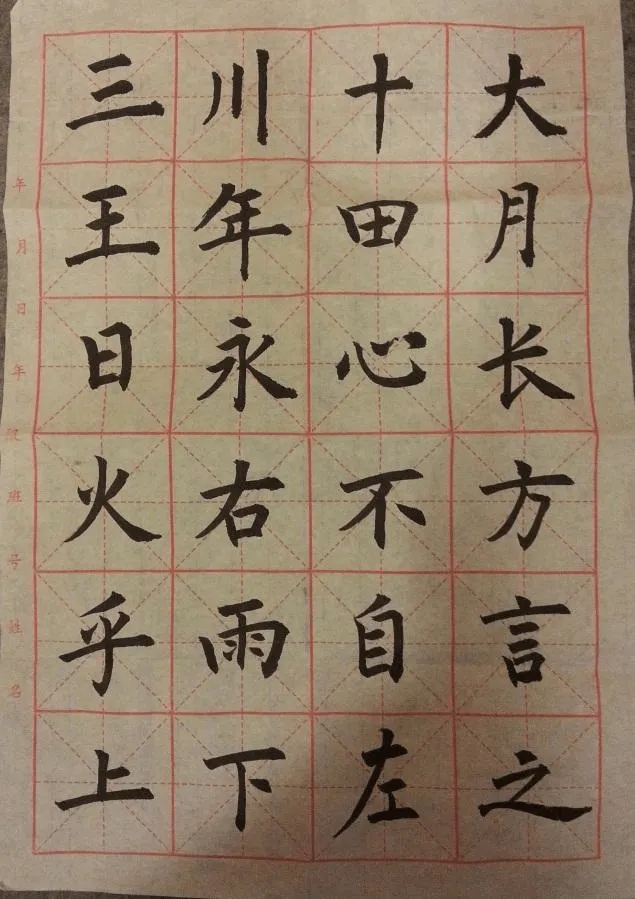 大月长方言之
十田心不自左
川年永右雨下
三王日火乎上
年月日年级班号姓名